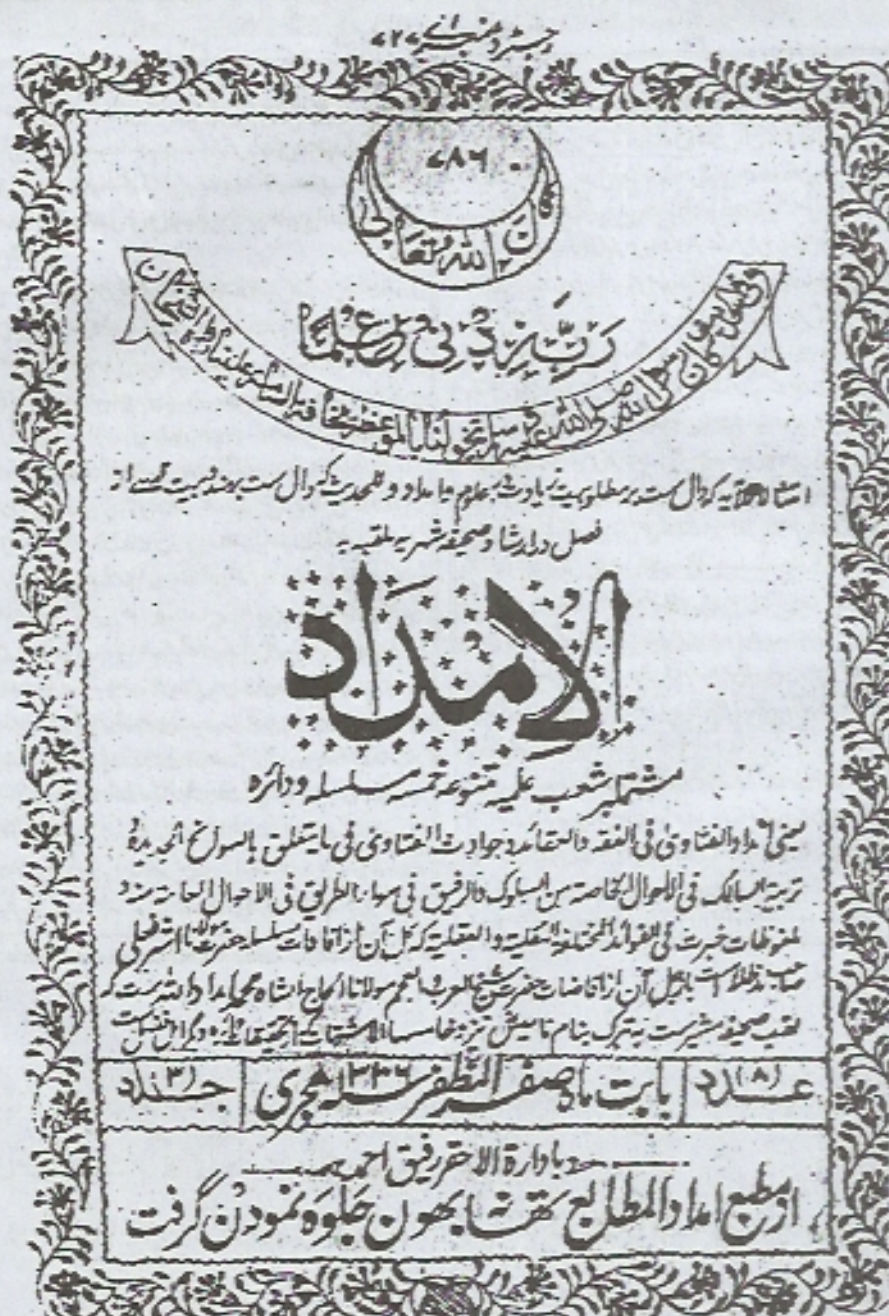 رجسٹرڈ نمبر اے ۷۲۷
۷۸۶
رَبِّ زِدْنِیْ عِلْمًا
کان رسول اللہ صلی اللہ علیہ وسلم یتخولنا بالموعظۃ مخافۃ السامۃ علینا
کہ دال ست بر مطلوبیت زیادت علوم و امداد و للحدیث کہ دال ست بر
فصل در ارشاد صحیفہ شہریہ ملقبہ بہ
الامداد
مشتمل بر شعب علمیہ متنوعہ خمسہ سلسلہ و دائرہ
یعنی امداد الفتاوی فی الفقہ والعقائد و حوادث الفتاوی فی ما یتعلق بالسوانح الجدیدۃ
تربیۃ السالک فی الاحوال الخاصۃ من السلوک والرفیق فی سواء الطریق فی الاحوال العامۃ منہ و
ملفوظات خبرت فی الفوائد المختلفۃ النقلیۃ والعقلیۃ کہ کل آن از افادات سلسلہ حضرت مولانا اشرفعلی
صاحب مدظلہ است باصل آن از افاضات حضرت شیخ العرب والعجم مولانا الحاج الشاہ محمد امداد اللہ ست کہ
لقب صحیفہ مشیر ست بہ تبرک بنام نامیش
عدد (۸)
بابت ماہ صفر المظفر ۱۳۳۶ سنہ ہجری
جلد (۳)
بادارۃ الاحقر رفیق احمد
از مطبع امداد المطابع تھانہ بھون جلوہ نمودن گرفت